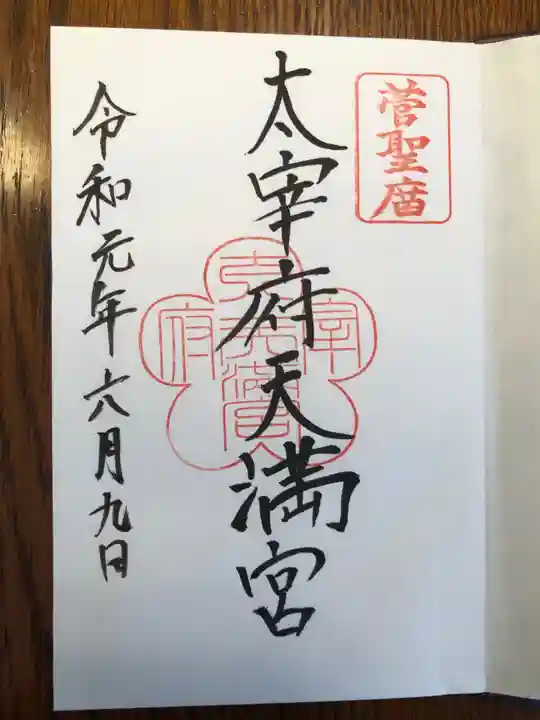 菅聖庿
太宰府天満宮
令和元年六月九日